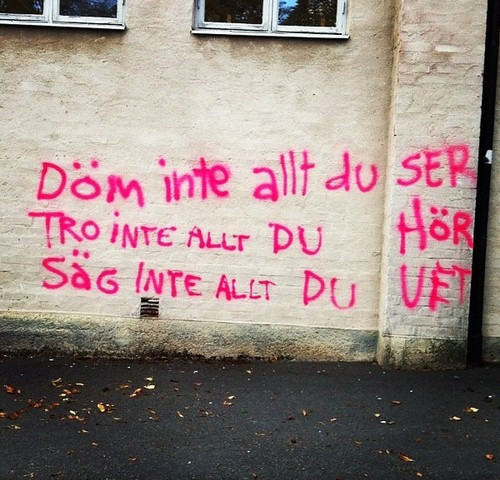 Döm inte allt du SER
TRO iNTE ALLT DU HÖR
SÄG INTE ALLT DU VET